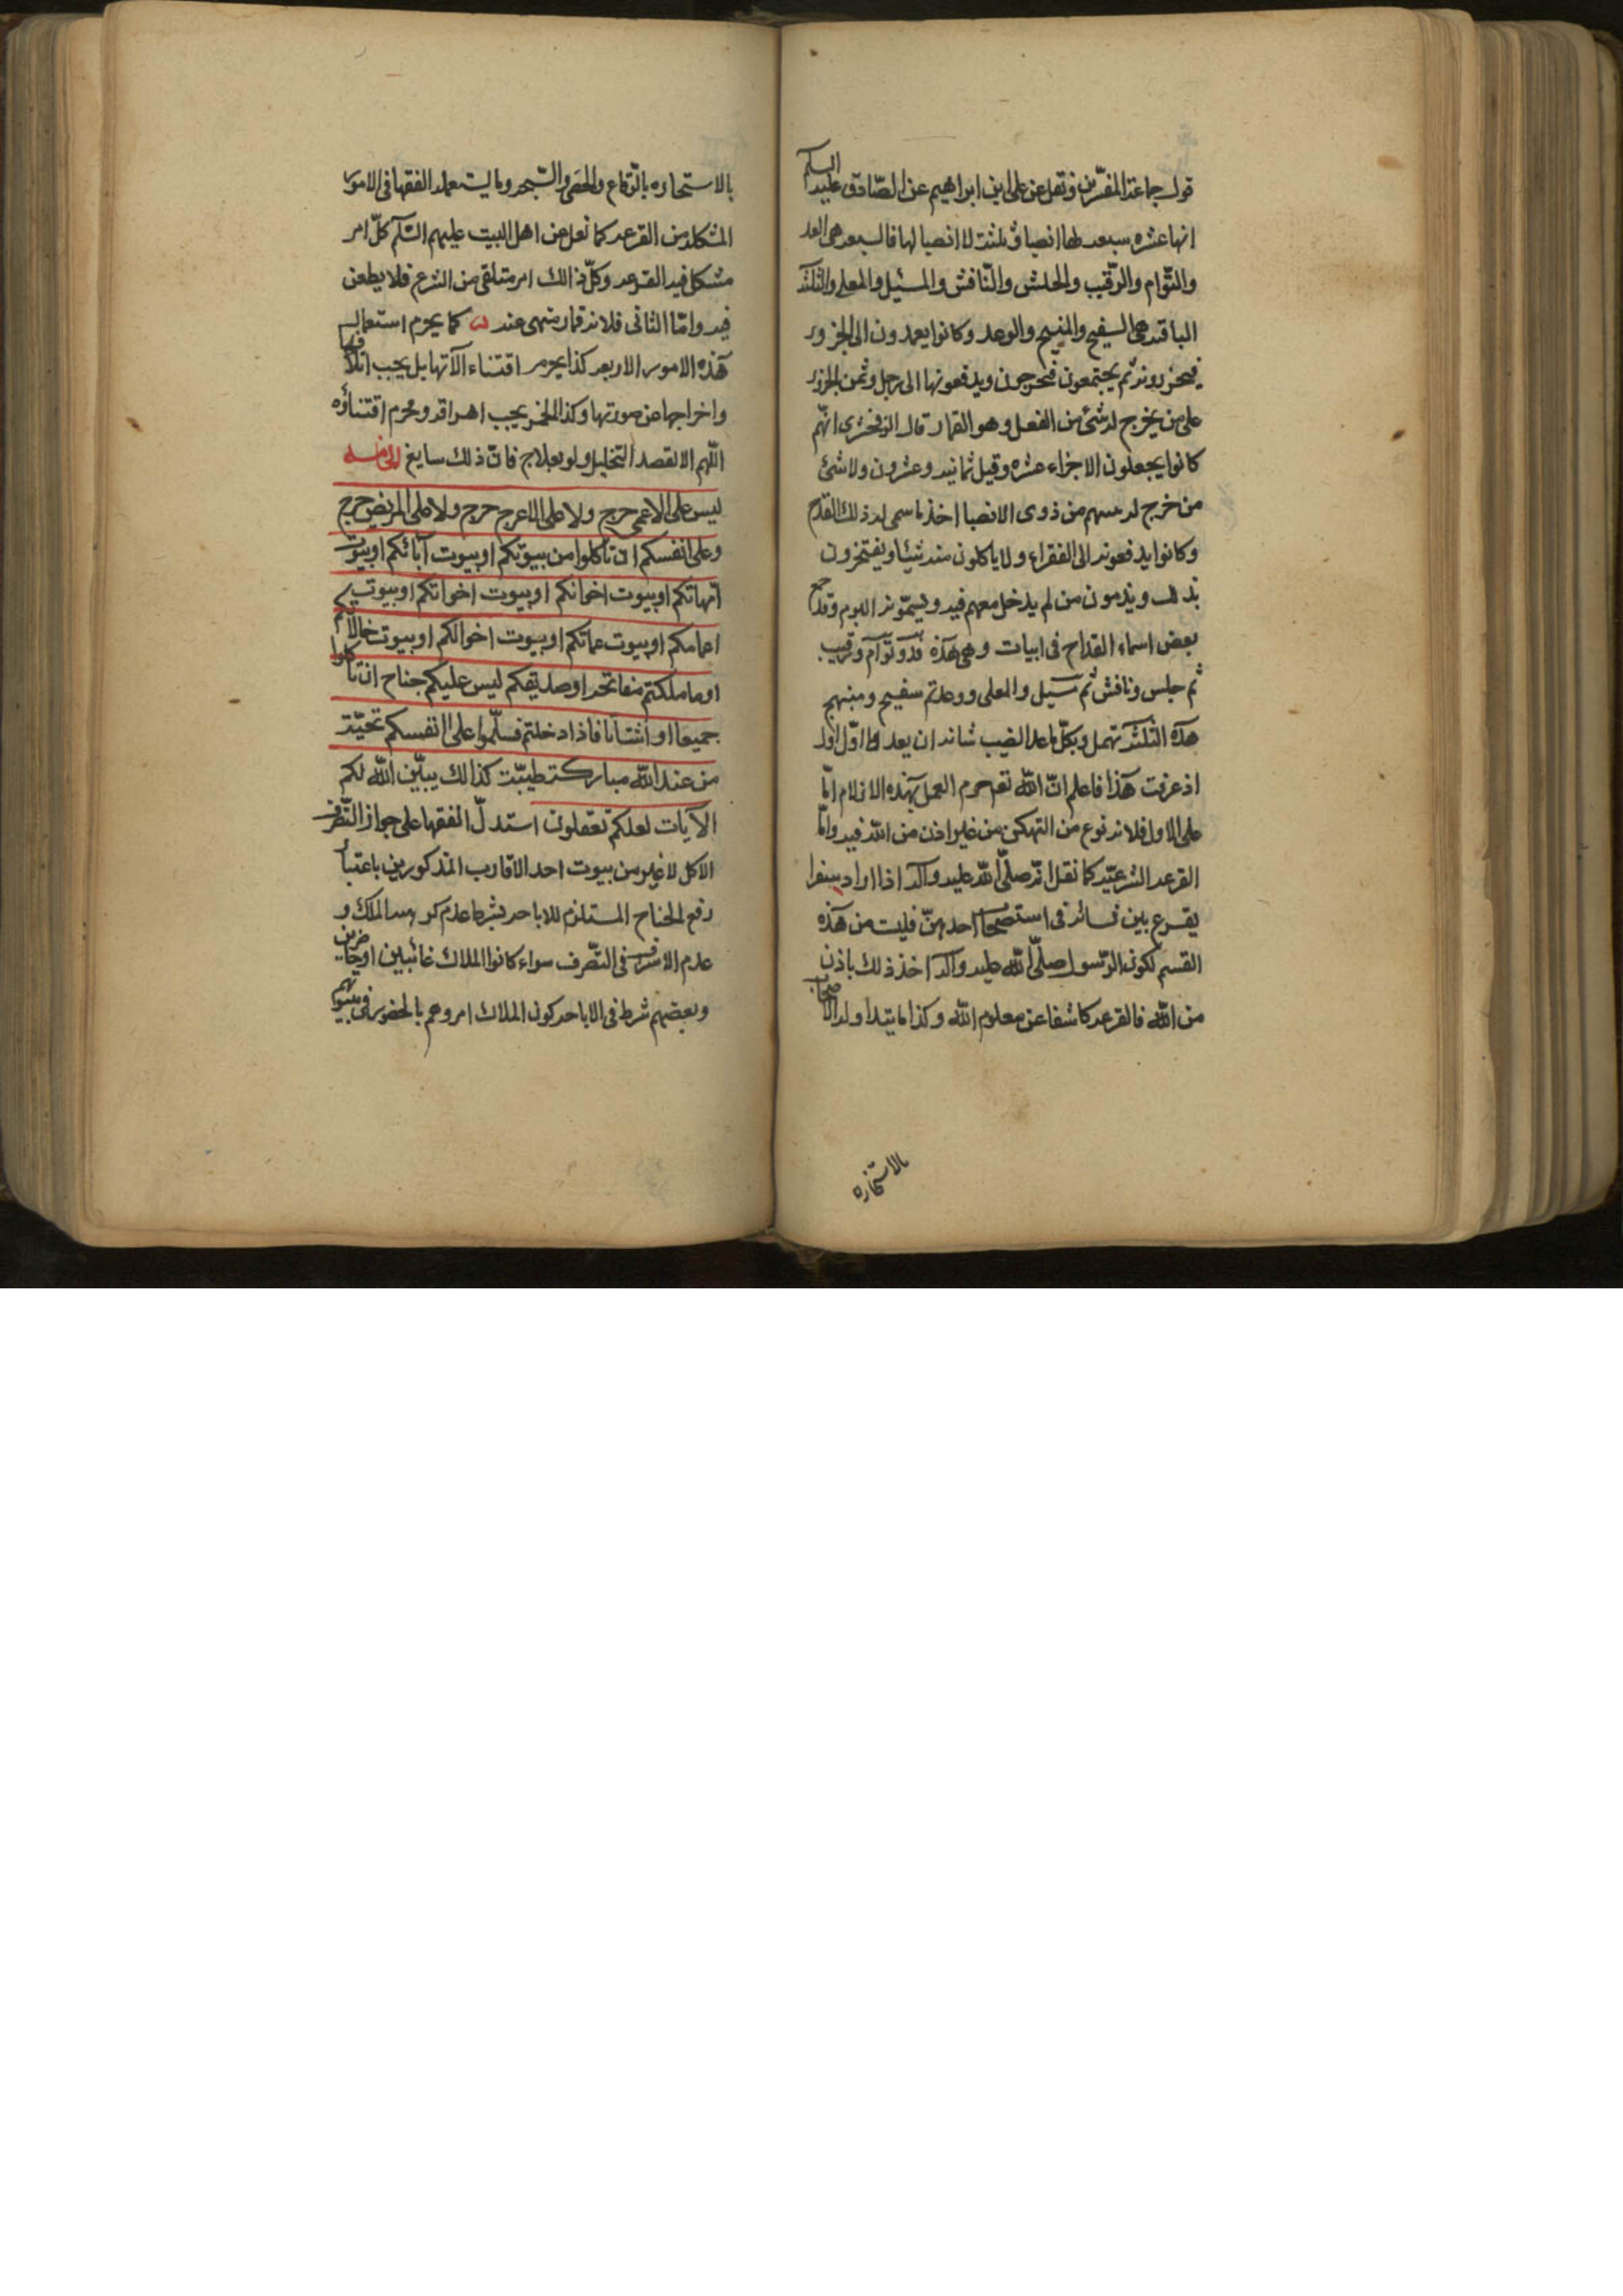 قول جماعة المفسّرين ونقل عن علی ابن ابراهيم عن الصّادق عليه السلم
انها عشره سبعه لها انصبا وثلثة لا انصبا لها فالسبعه هی الفد
والتّوام والرّقيب والحلس والنّافش والمسيل والمعلی والثلثة
الباقيه هی السفيح والمنيح والوعد وكانوا يعمدون الی الجزور
فيجزرونه ثم يجتمعون فيخرجون ويدفعونها الی رجل وثمن الجزور
علی من يخرج له شئ من الغفل وهو القمار قال الزمخشری انهم
كانوا يجعلون الاجزاء عشره وقيل ثمانيه وعشرون ولا شئ
من خرج له سهم من ذوی الانصبا اخذ ما سمی له ذلك القدح
وكانوا يدفعونه الی الفقراء ولا ياكلون منه شيئا ويفتخرون
بذلك ويذمون من لم يدخل معهم فيه ويسمّونه البرم وقد جمع
بعض اسماء القداح فی ابيات وهی هذه فذ وتوام ورقيب
ثم حلس ونافش ثم مسيل والمعلی ووغدثم سفيح ومنيح
هذه الثلثة تهمل وبكل ماعدا لنصيب شانه ان يعد اوّل اول
اذ عرفت هذا فاعلم انّ الله تعم حرم العمل بهذه الازلام امّا
علی الاول فلانه نوع من التهكن من غير اذن من الله فيه وامّا
القرعه الشرعيّه كما نقل انّه صلّی الله عليه وآله اذا اراد سفرا
يقرع بين نسائه فی استصحاب احدهنّ فليت من هذه
القسم لكون الرّسول صلّی الله عليه وآله اخذ ذلك باذن
من الله فالقرعه كاشفا عن معلوم الله وكذا ما يتداوله الاصحاب
بالاستخاره
بالاستخاره بالرّقاع والحصی والسّبحه وما يستعمله الفقها فی الامور
المشكله من القرعه كما نعل عن اهل البيت عليهم السّلم كلّ امر
مشكل فيه القرعه وكلّ ذالك امر متلقی من الشرع فلا يطعن
فيه وامّا الثانی فلانه قمار منهی عنه كما يحرم استعمال
هذه الامور الاربعه كذا يحرم اقتناء آلاتها بل يجب اتلافها
واخراجها عن صورتها وكذا الخمر يجب اهراقه ومحرم اقتناؤه
اللّهم الا لقصد التخليل ولو بعلاج فانّ ذلك سايغ
ليس علی الاعمی حرج ولا علی الاعرج حرج ولا علی المريض حرج
وعلی انفسكم ان تاكلوا من بيوتكم او بيوت آبائكم او بيوت
امّهاتكم او بيوت اخوانكم او بيوت اخواتكم او بيوت
اعمامكم او بيوت عماتكم او بيوت اخوالكم او بيوت خالاتكم
او ما ملكتم مفاتحه او صديقكم ليس عليكم جناح ان تاكلوا
جميعا او اشتاتا فاذا دخلتم فسلّموا علی انفسكم تحيّة
من عند الله مباركة طيبّة كذالك يبيّن الله لكم
الآيات لعلكم تعقلون استدلّ الفقها علی جواز التّصرف
الاكل لا غير من بيوت احد الاقارب المذكورين باعتبار
رفع الجناح المستلزم للاباحه بشرط عدم الملك و
عدم الاسراف فی التّصرف سواء كانوا الملاك غائبين او حاضرين
وبعضهم شرط فی الاباحه كون الملاك امروهم بالحضور فی بيوتهم